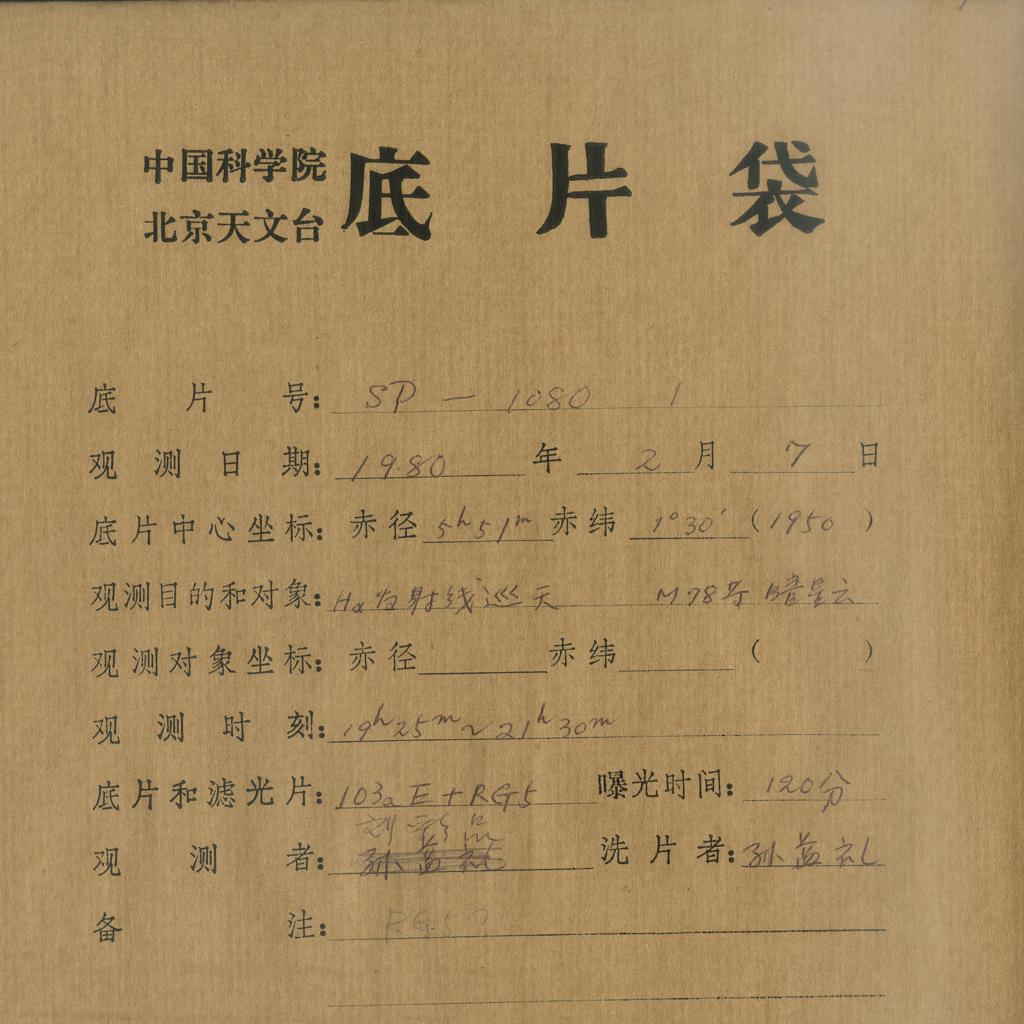 中国科学院
北京天文台
底片袋
底片号: SP — 1080 1
观测日期: 1980 年 2 月 7 日
底片中心坐标: 赤径 5h51m 赤纬 1°30′ (1950)
观测目的和对象: Hα发射线巡天 M78号暗星云
观测对象坐标: 赤径 赤纬 ( )
观测时刻: 19h25m~21h30m
底片和滤光片: 103aE+RG5 曝光时间: 120分
观测者: 洗片者: 孙益礼
备注: RG5?